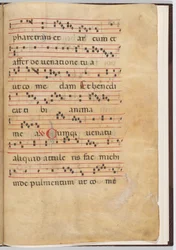 pharetram et ar cum et
affer de venatione tua
ut come dam et benedi
cat ti bi anima
me a Cumqz venatu
aliquid attule ris fac michi
inde pulmentum ut come